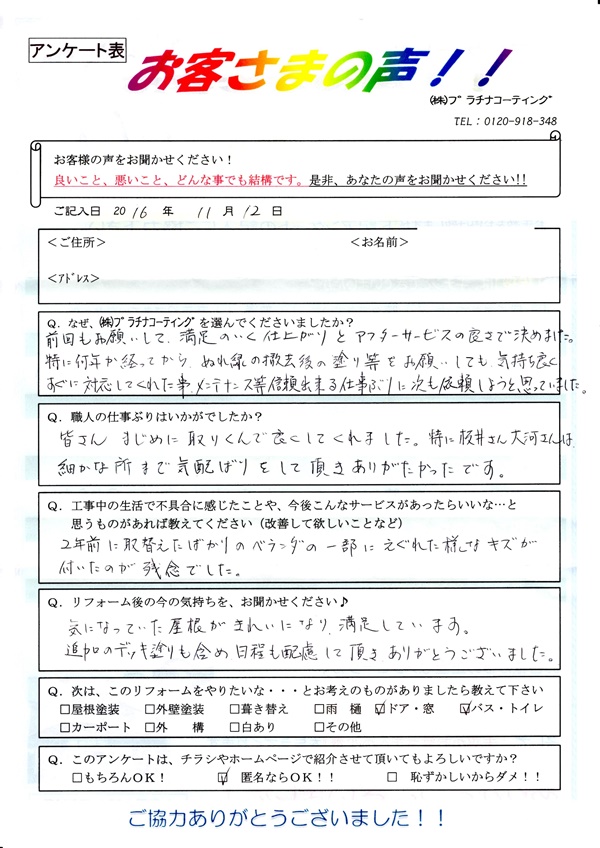 アンケート表
お客さまの声！！
㈱プラチナコーティング
TEL：0120-918-348
お客様の声をお聞かせください！
良いこと、悪いこと、どんな事でも結構です。是非、あなたの声をお聞かせください!!
ご記入日 2016 年 11 月 12 日
＜ご住所＞ ＜お名前＞
＜アドレス＞
Q．なぜ、㈱プラチナコーティングを選んでくださいましたか？
前回もお願いして、満足のいく仕上がりとアフターサービスの良さで決めました。
特に何年か経ってから、ぬれ縁の撤去後の塗り等をお願いしても、気持ち良く
すぐに対応してくれた事、メンテナンス等信頼出来る仕事ぶりに次も依頼しようと思っていました。
Q．職人の仕事ぶりはいかがでしたか？
皆さん まじめに取りくんで良くしてくれました。特に桜井さん大河さんは、
細かな所まで気配ばりをして頂きありがたかったです。
Q．工事中の生活で不具合に感じたことや、今後こんなサービスがあったらいいな…と
思うものがあれば教えてください（改善して欲しいことなど）
2年前に取替えたばかりのベランダの一部にえぐれた様なキズが
付いたのが残念でした。
Q．リフォーム後の今の気持ちを、お聞かせください♪
気になっていた屋根がきれいになり、満足しています。
追加のデッキ塗りも含め日程も配慮して頂きありがとうございました。
Q．次は、このリフォームをやりたいな・・・とお考えのものがありましたら教えて下さい
□屋根塗装 □外壁塗装 □葺き替え □雨 樋 ☑ドア・窓 ☑バス・トイレ
□カーポート □外 構 □白あり □その他
Q．このアンケートは、チラシやホームページで紹介させて頂いてもよろしいですか？
□もちろんOK！ ☑ 匿名ならOK！！ □ 恥ずかしいからダメ！！
ご協力ありがとうございました！！